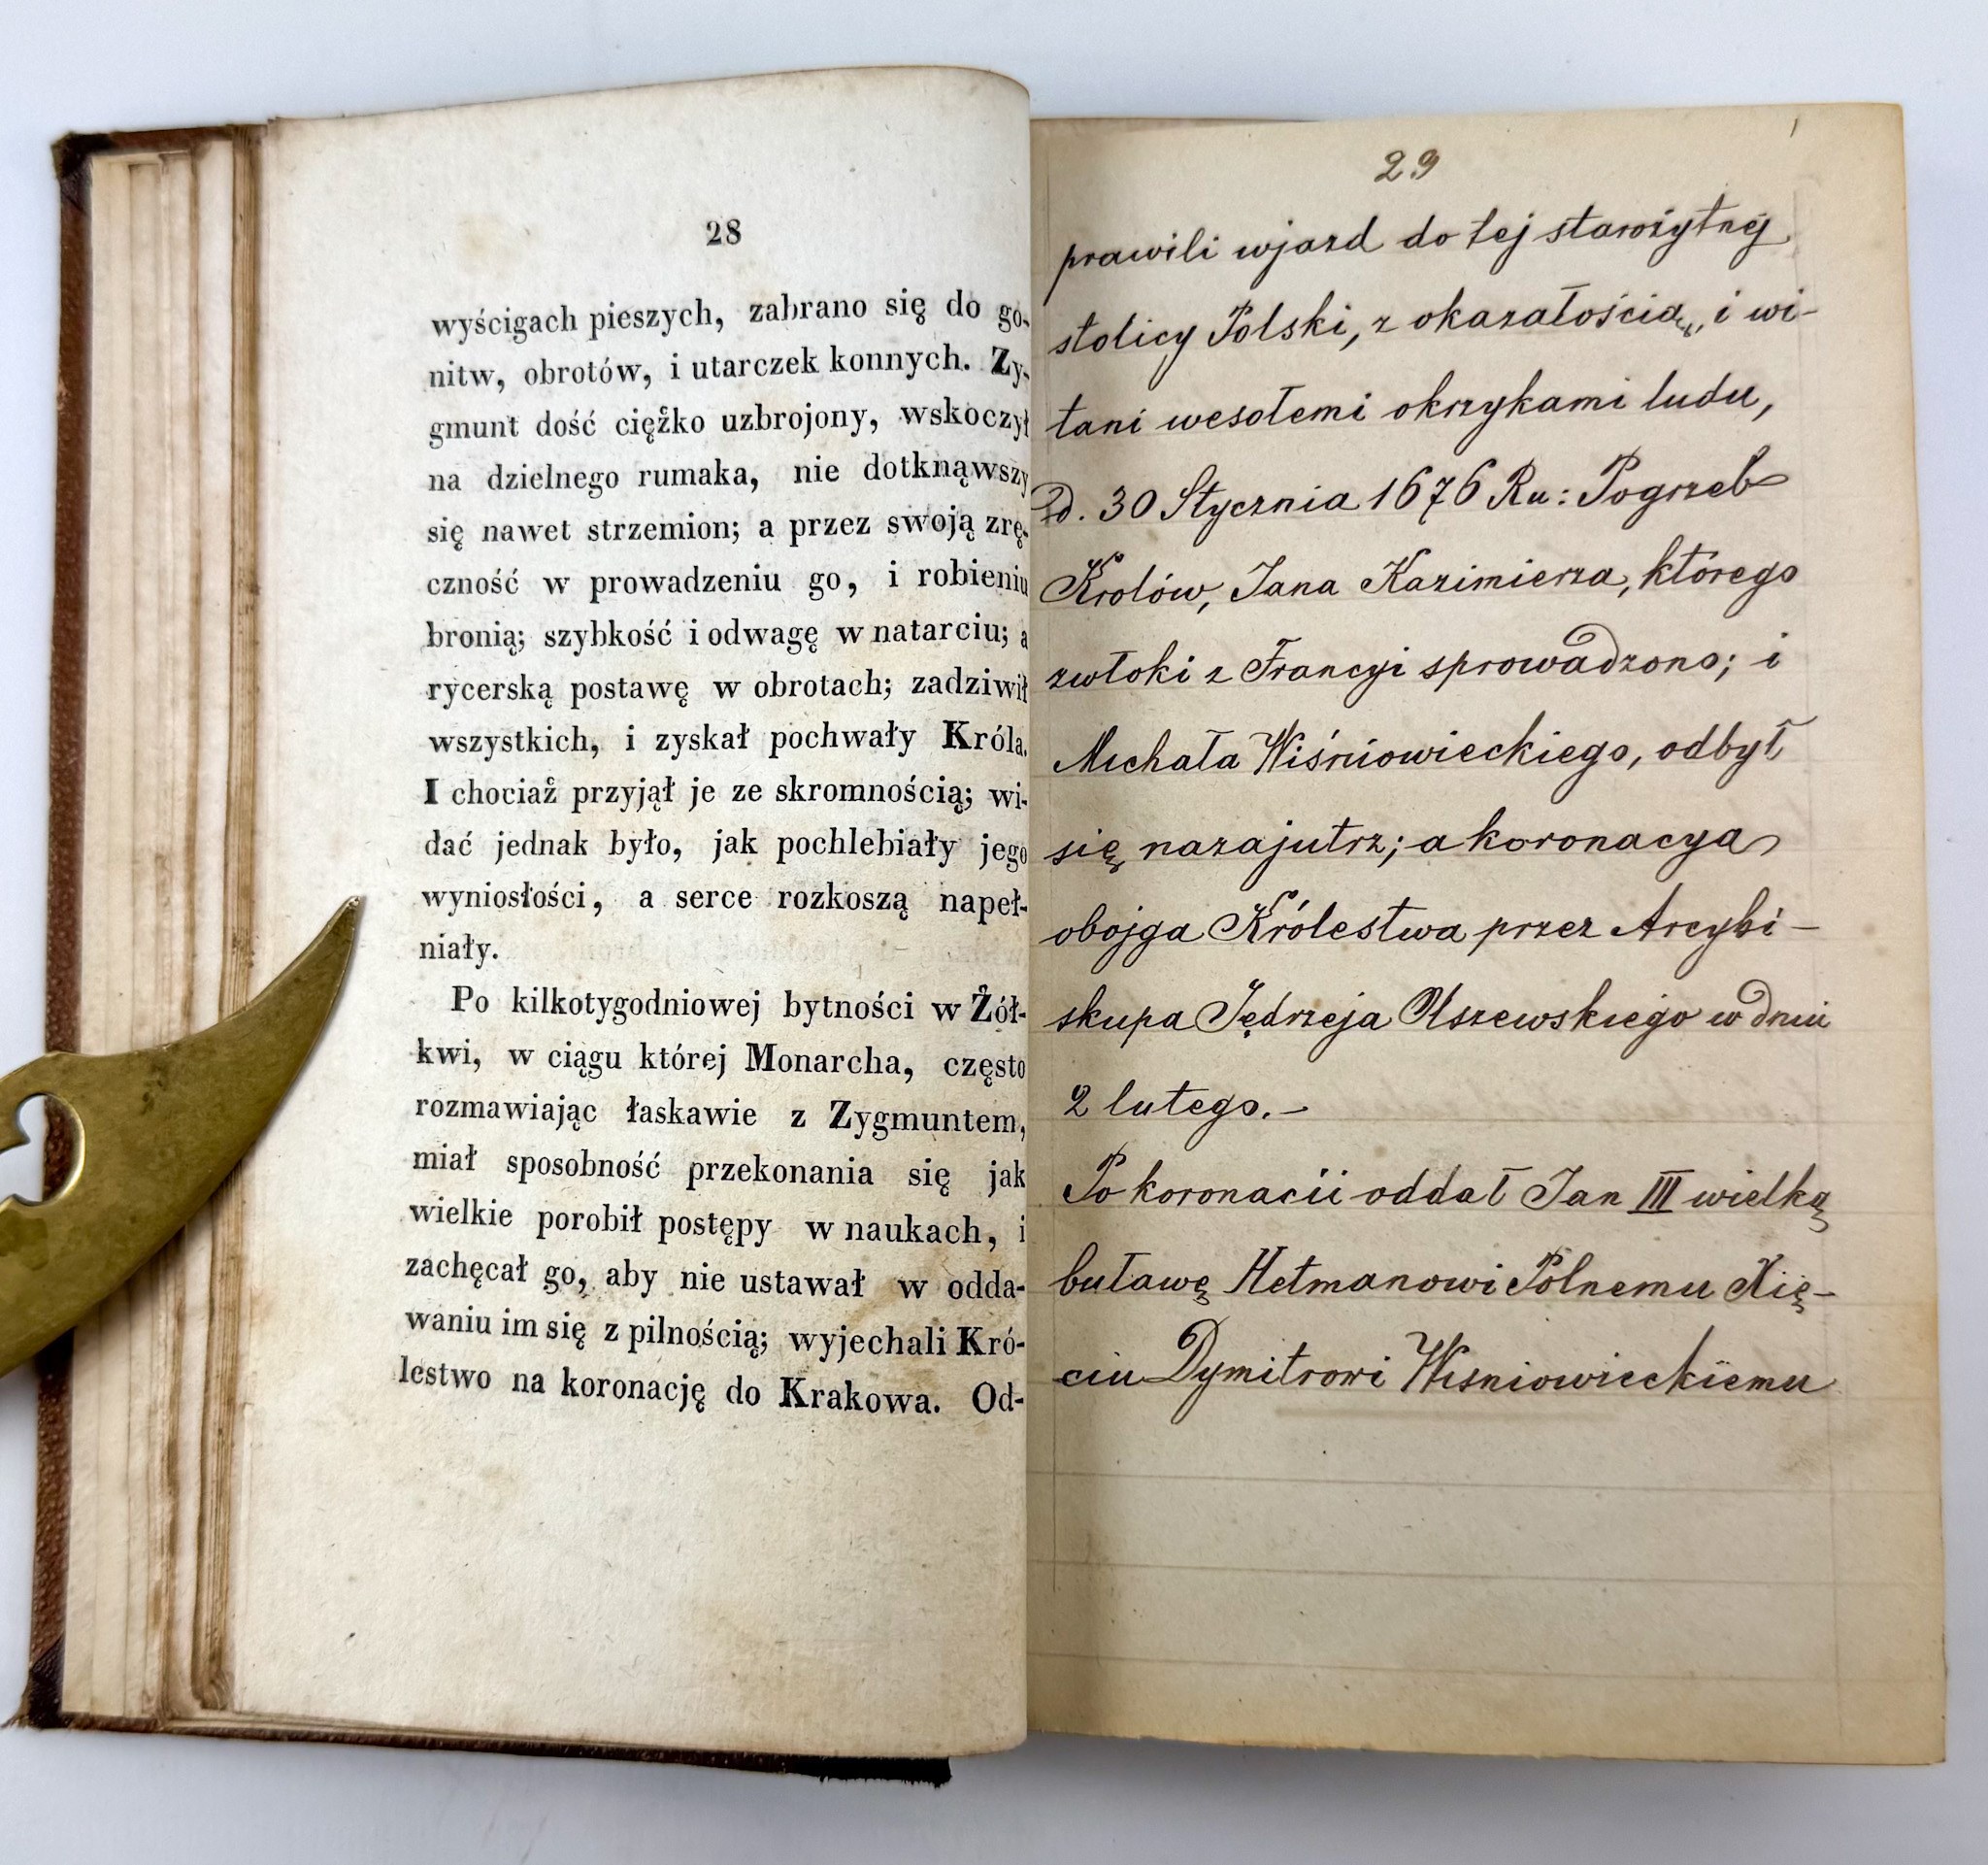 28
wyścigach pieszych, zabrano się do go-
nitw, obrotów, i utarczek konnych. Zy-
gmunt dość ciężko uzbrojony, wskoczył
na dzielnego rumaka, nie dotknąwszy
się nawet strzemion; a przez swoją zrę-
czność w prowadzeniu go, i robieniu
bronią; szybkość i odwagę w natarciu; a
rycerską postawę w obrotach; zadziwił
wszystkich, i zyskał pochwały Króla.
I chociaż przyjął je ze skromnością; wi-
dać jednak było, jak pochlebiały jego
wyniosłości, a serce rozkoszą napeł-
niały.
Po kilkotygodniowej bytności w Żół-
kwi, w ciągu której Monarcha, często
rozmawiając łaskawie z Zygmuntem,
miał sposobność przekonania się jak
wielkie porobił postępy w naukach, i
zachęcał go, aby nie ustawał w odda-
waniu im się z pilnością; wyjechali Kró-
lestwo na koronację do Krakowa. Od-
29
prawili wjazd do tej starożytnej
stolicy Polski, z okazałością, i wi-
tani wesołemi okrzykami ludu,
d. 30 Stycznia 1676 Ru: Pogrzeb
Krolów, Jana Kazimierza, którego
zwłoki z Francyi sprowadzono; i
Michała Wiśniowieckiego, odbył
się nazajutrz; a koronacya
obojga Królestwa przez Arcybi-
skupa Jędrzeja Olszewskiego w dniu
2 lutego.-
Po koronacii oddał Jan III wielką
buławę Hetmanowi Polnemu Xię-
ciu Dymitrowi Wisniowieckiemu